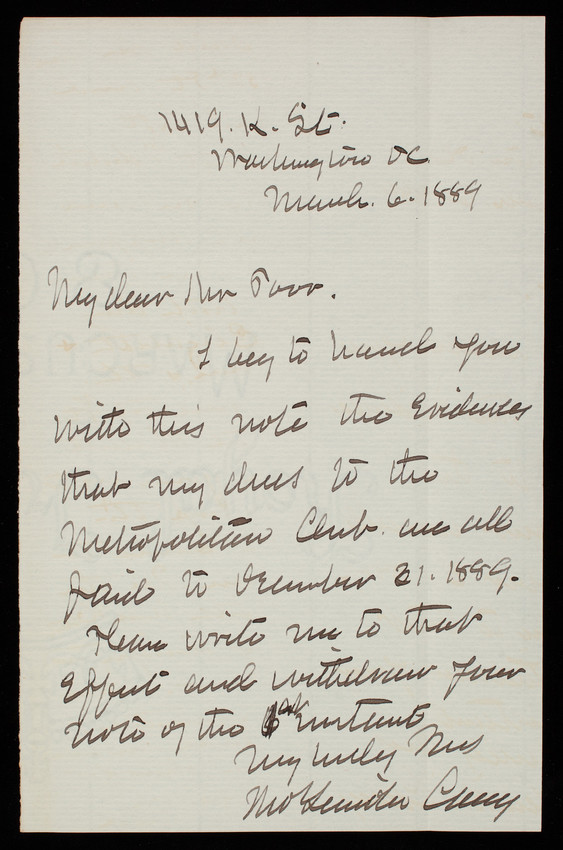 1419. K. St.
Washington DC.
March. 6. 1889
My dear Mr
I beg to hand you
with this note the Evidences
that my dues to the
Metropolitan Club. are all
paid to December 31. 1889.
Please write me to that
Effect and withdraw your
note of the instant
My truly Yrs